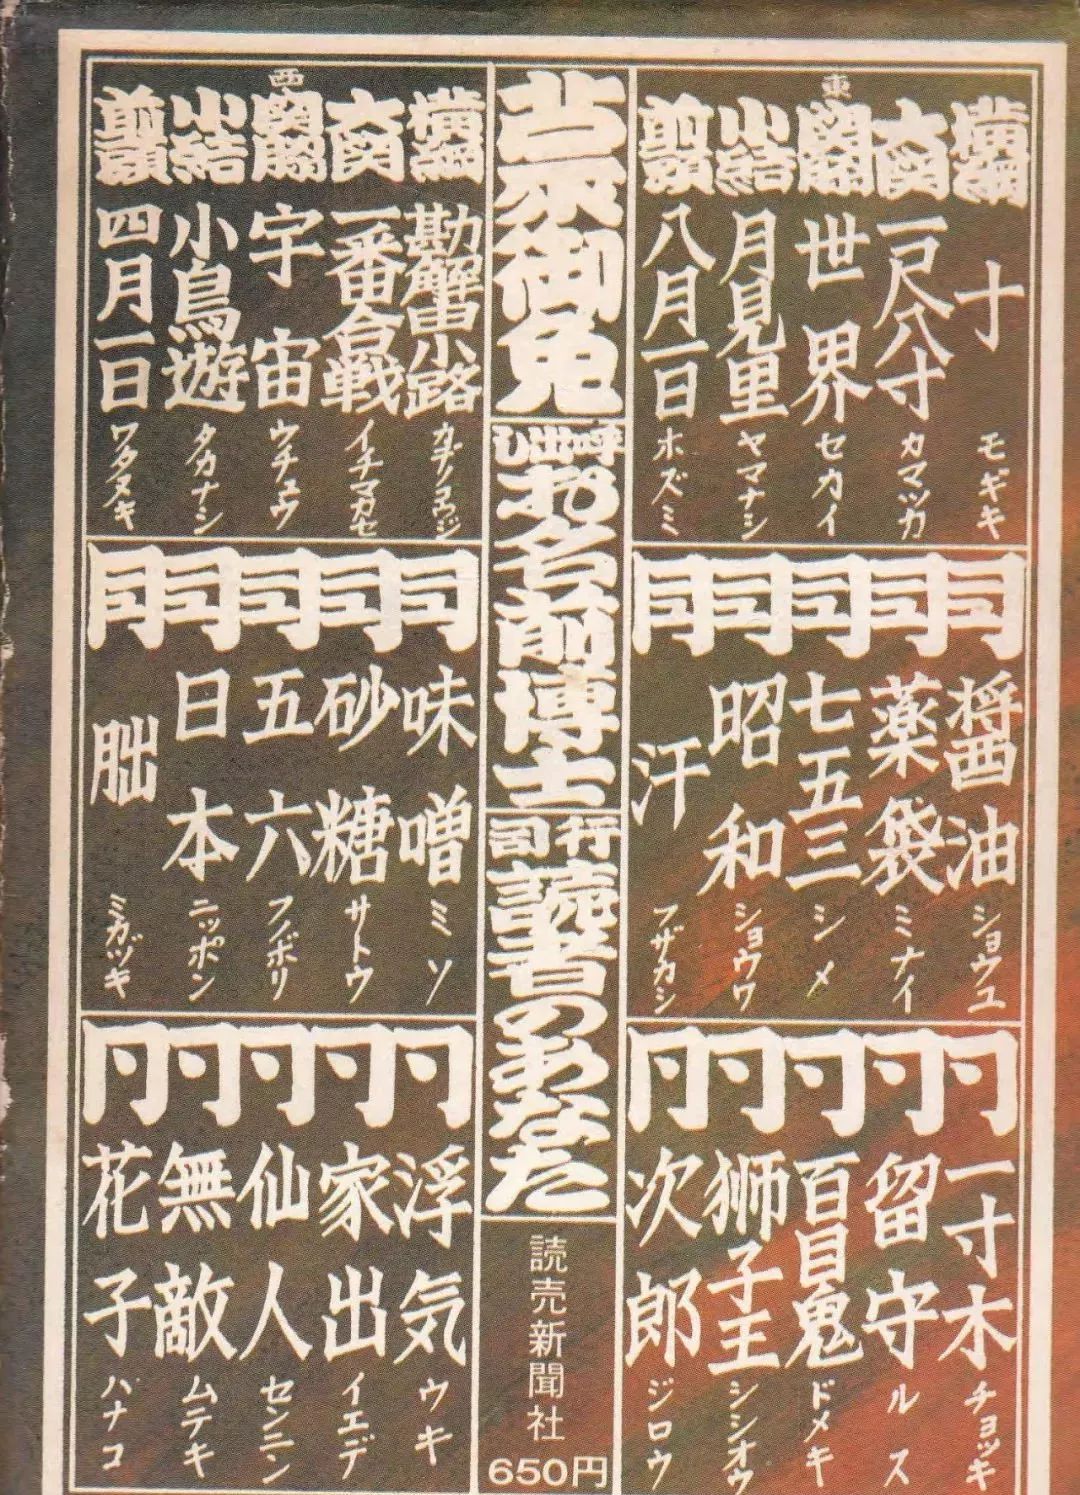 東
横綱 十 モギキ
大関 一尺八寸 カマツカ
関脇 世界 セカイ
小結 月見里 ヤマナシ
前頭 八月一日 ホズミ
同 醤油 ショウユ
同 薬袋 ミナイ
同 七五三 シメ
同 昭和 ショウワ
同 汗 フザカシ
同 一寸木 チョッキ
同 留守 ルス
同 百目鬼 ドメキ
同 獅子王 シシオウ
同 次郎 ジロウ
蒙御免
呼出し お名前博士
行司 読者のあなた
読売新聞社
650円
西
横綱 勘解由小路 カデノコウジ
大関 一番合戦 イチマカセ
関脇 宇宙 ウチュウ
小結 小鳥遊 タカナシ
前頭 四月一日 ワタヌキ
同 味噌 ミソ
同 砂糖 サトウ
同 五六 フノボリ
同 日本 ニッポン
同 朏 ミカヅキ
同 浮気 ウキ
同 家出 イエデ
同 仙人 センニン
同 無敵 ムテキ
同 花子 ハナコ